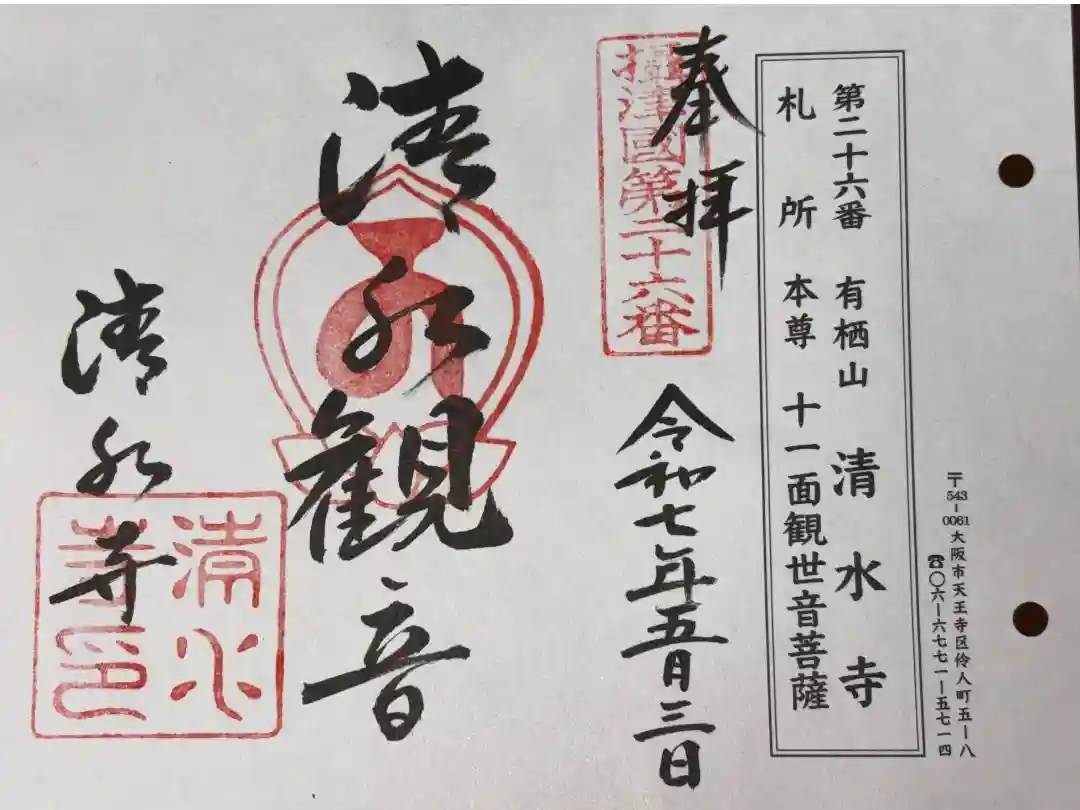 〒543-0061大阪市天王寺区伶人町五ー八
☎〇六ー六七七一ー五七一四
第二十六番 有栖山 清水寺
札所本尊 十一面観世音菩薩
奉拝
攝津國第二十六番
令和七年五月三日
清水観音
清水寺
清水寺印